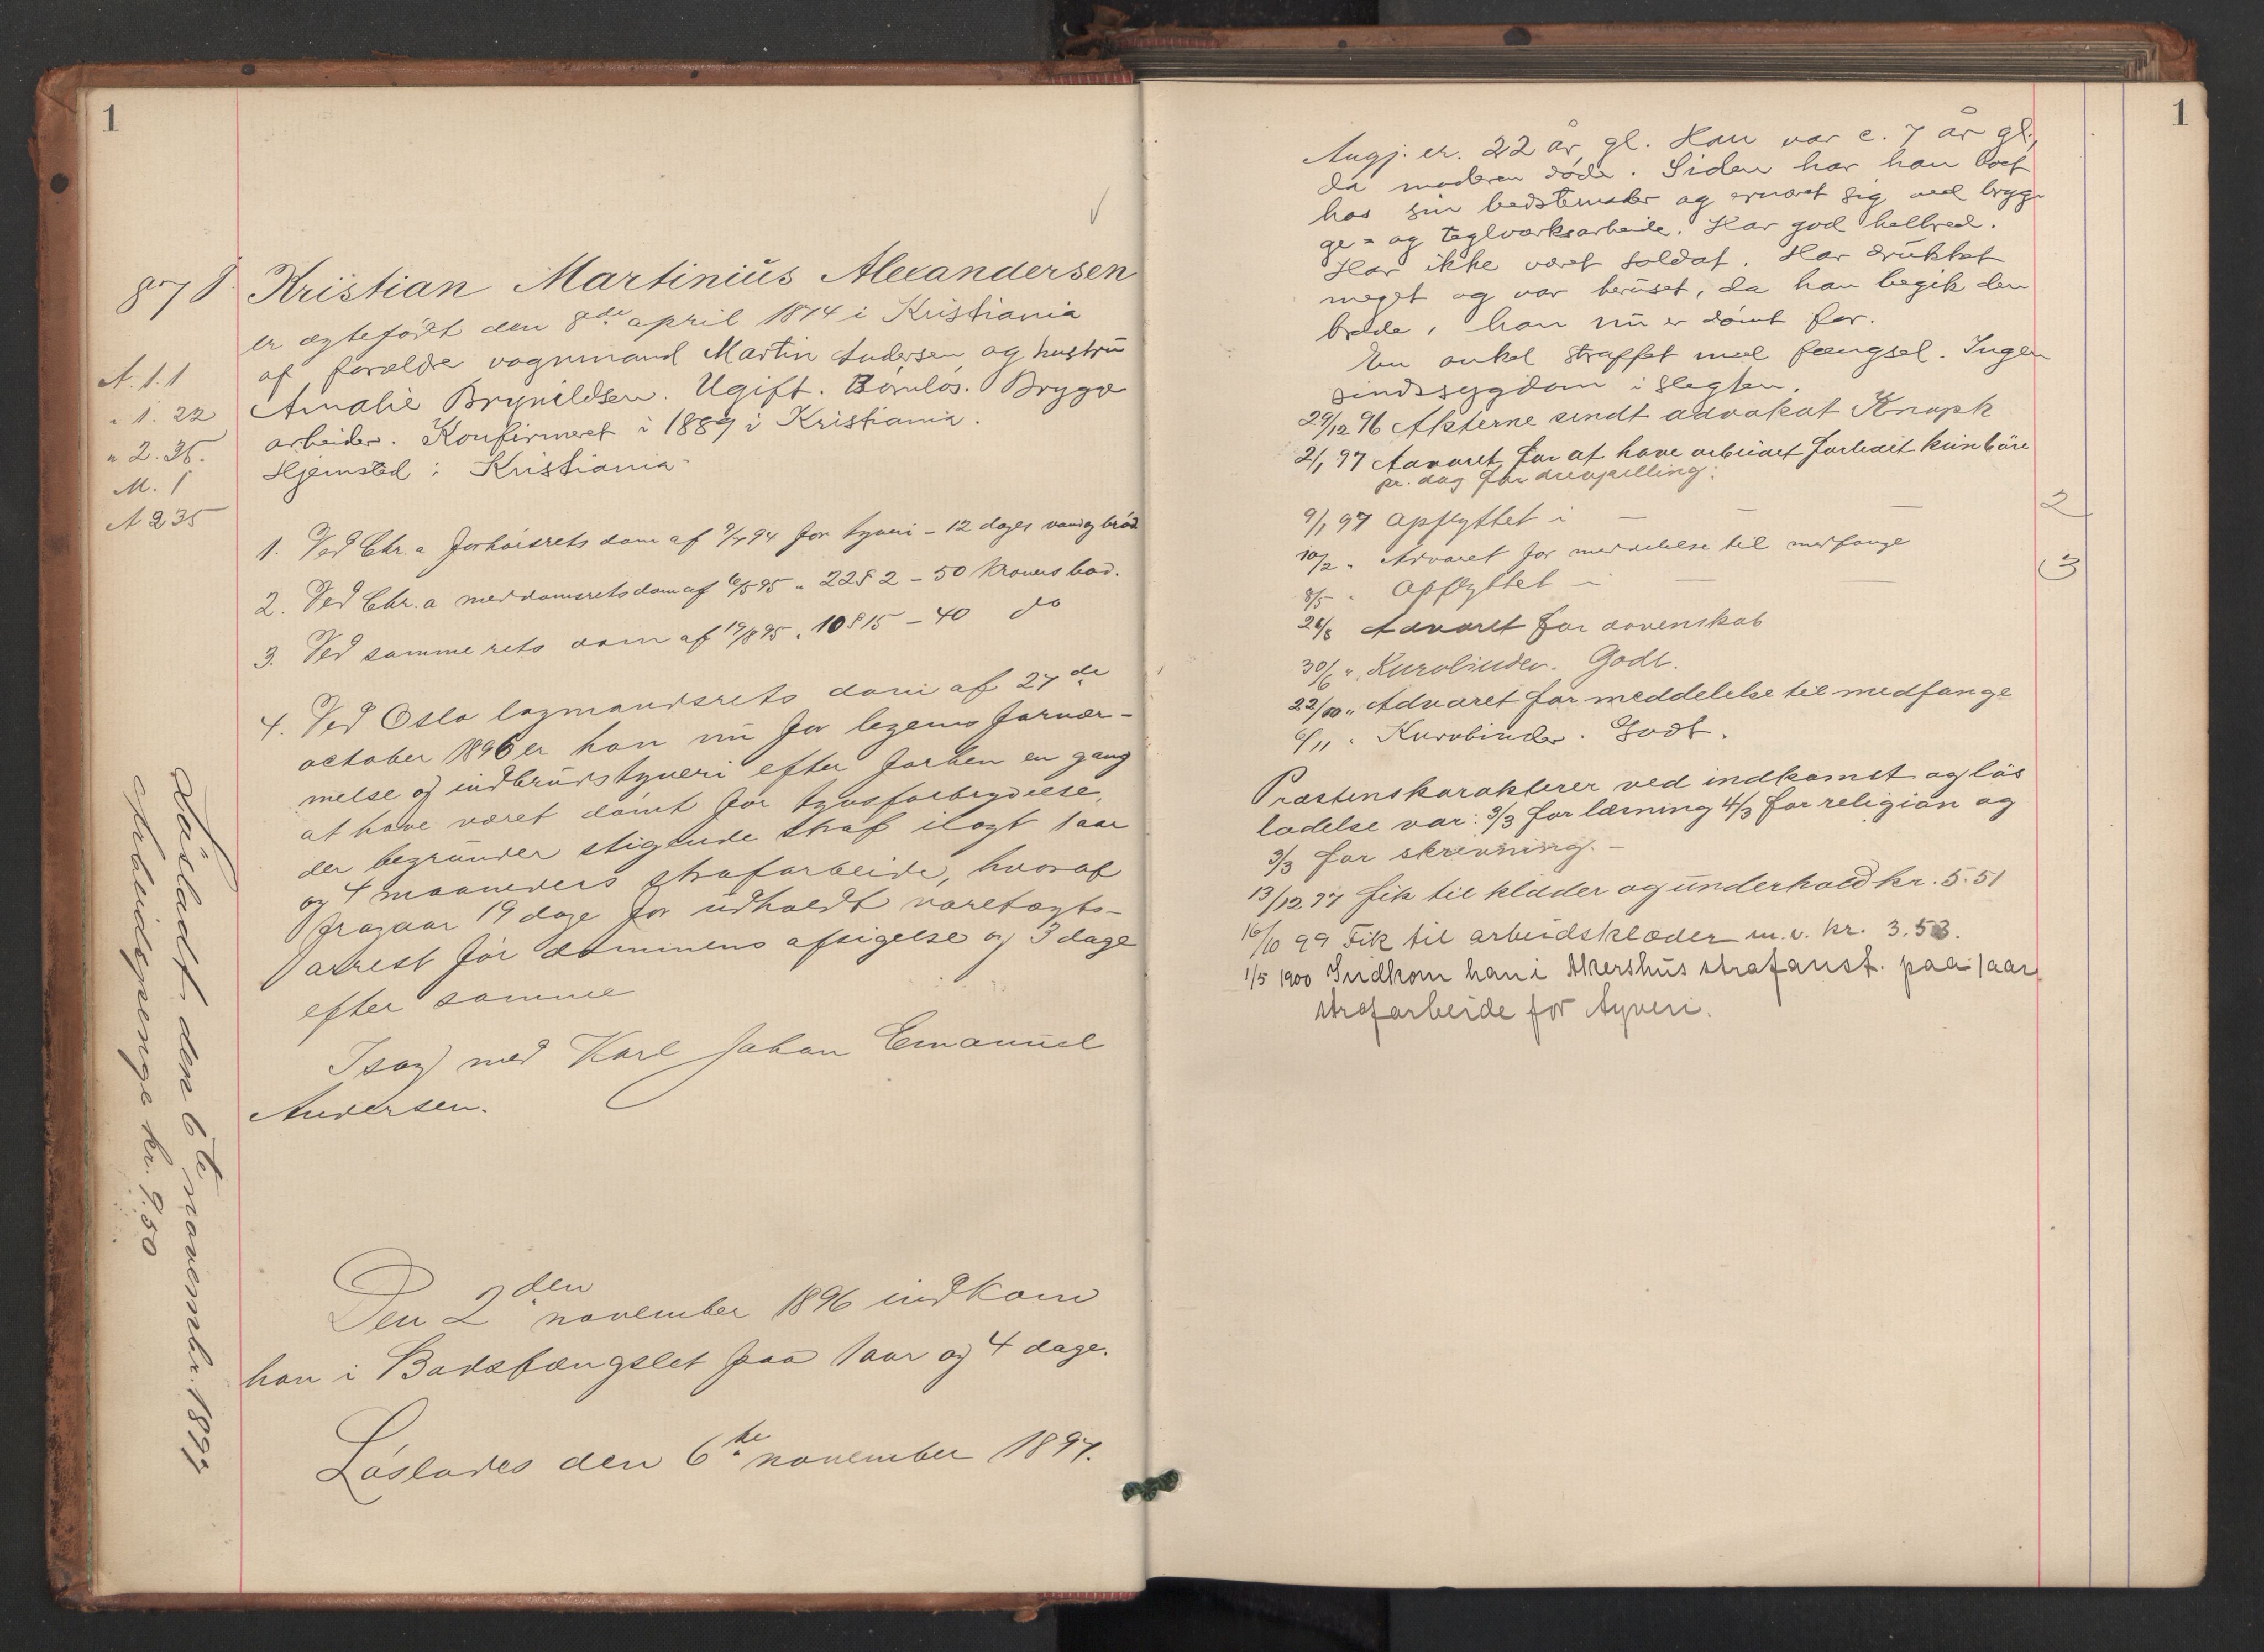 1
878
Kristian Martinius Alexandersen
er ægtefödt den 8de april 1874 i Kristiania
af forældre vognmand Martin Andersen og hustru
Amalie Brynildsen. Ugift. Börnlös. Brygge
arbeider. Konfirmeret i 1889 i Kristiania.
Hjemsted: Kristiania
A. 1. 1
" 1. 22
" 2. 36.
M. 1
A 2 35
1. Ved Chr.a forhörsrets dom af 94 for tyveri - 12 dages vand og bröd
2. Ved Chr.a meddomsrets dom af 6/5 95 " 22 § 2 - 50 kroners bod.
3. Ved samme rets dom af 19/8 95 " 10 § 15 - 40 do
4. Ved Oslo lagmandsrets dom af 27de
october 1896 er han nu for legems fornær-
melse og indbrudstyveri efter forhen en gang
at have været dömt for tyvsforbrydelse,
der begrunder stigende straf ilagt 1 aar
og 4 maaneders strafarbeide, hvoraf
fragaar 19 dage for udholdt varetægts-
arrest för dommens afsigelse og 3 dage
efter samme
I sag med Karl Johan Emanuel
Andersen.
Den 2den november 1896 indkom
han i Bodsfængslet paa 1 aar og 4 dage.
Löslodes den 6te november 1897.
Lösladt den 6te november 1897
Arbeidspenge kr. 9.50
1
Angj. er. 22 år gl. Han var c. 7 år gl.,
da moderen döde. Siden har han boet
hos sin bedstemoder og ernæret sig ved bryg-
ge- og teglværksarbeide. Har god helbred.
Har ikke været soldat. Har drukket
meget og var beruset, da han begik den
bröde, han nu er dömt for.
En onkel straffet med fængsel. Ingen
sindssygdom i slegten.
29/12 96 Akterne sendt advokat
2/1 97 Advaret for at have arbeidet forbait kun 6 öre
pr. dag for drevpilling.
9/1 97 Opflyttet i — — — 2
10/2 " Advaret for meddelelse til medfange
8/5 " Opflyttet i — — 3
26/5 Advaret for dovenskab
30/6 " Kurvbinder. Godt.
22/10 " Advaret for meddelelse til medfange
6/11 " Kurvbinder. Godt.
Præstens karakterer ved indkomst og lös
ladelse var: 3/3 for læsning 4/3 for religion og
3/3 for skrivning. -
13/12 97 fik til klæder og underhold kr. 5.51
16/10 99 Fik til arbeidsklæder m.v. kr. 3.53.
1/5 1900 Indkom han i Akershus strafanst. paa 1 aar
strafarbeide for tyveri.